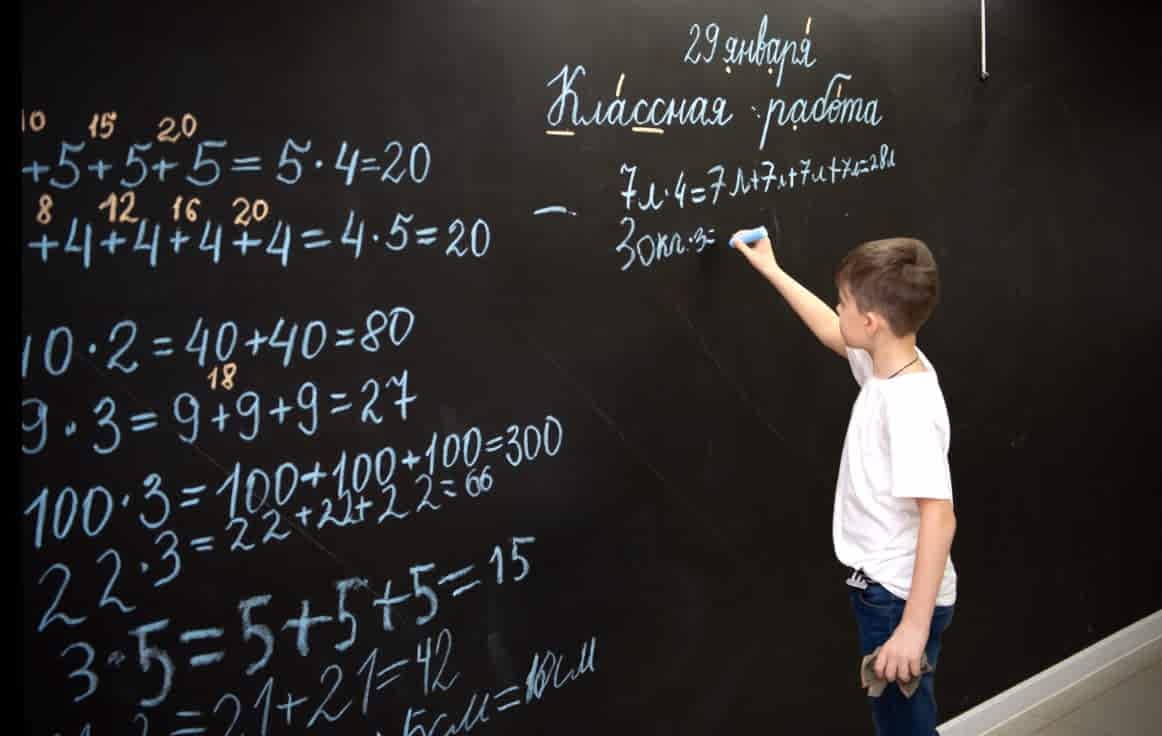 29 января
Классная работа
10 15 20
+5+5+5=5·4=20
8 12 16 20
+4+4+4+4=4·5=20
10·2=40+40=80
18
9·3=9+9+9=27
100·3=100+100+100=300
22·3=22+22+22=66
3·5=5+5+5=15
=21+21=42
5см=10см
7л·4=7л+7л+7л+7л=28л
30кг·3=